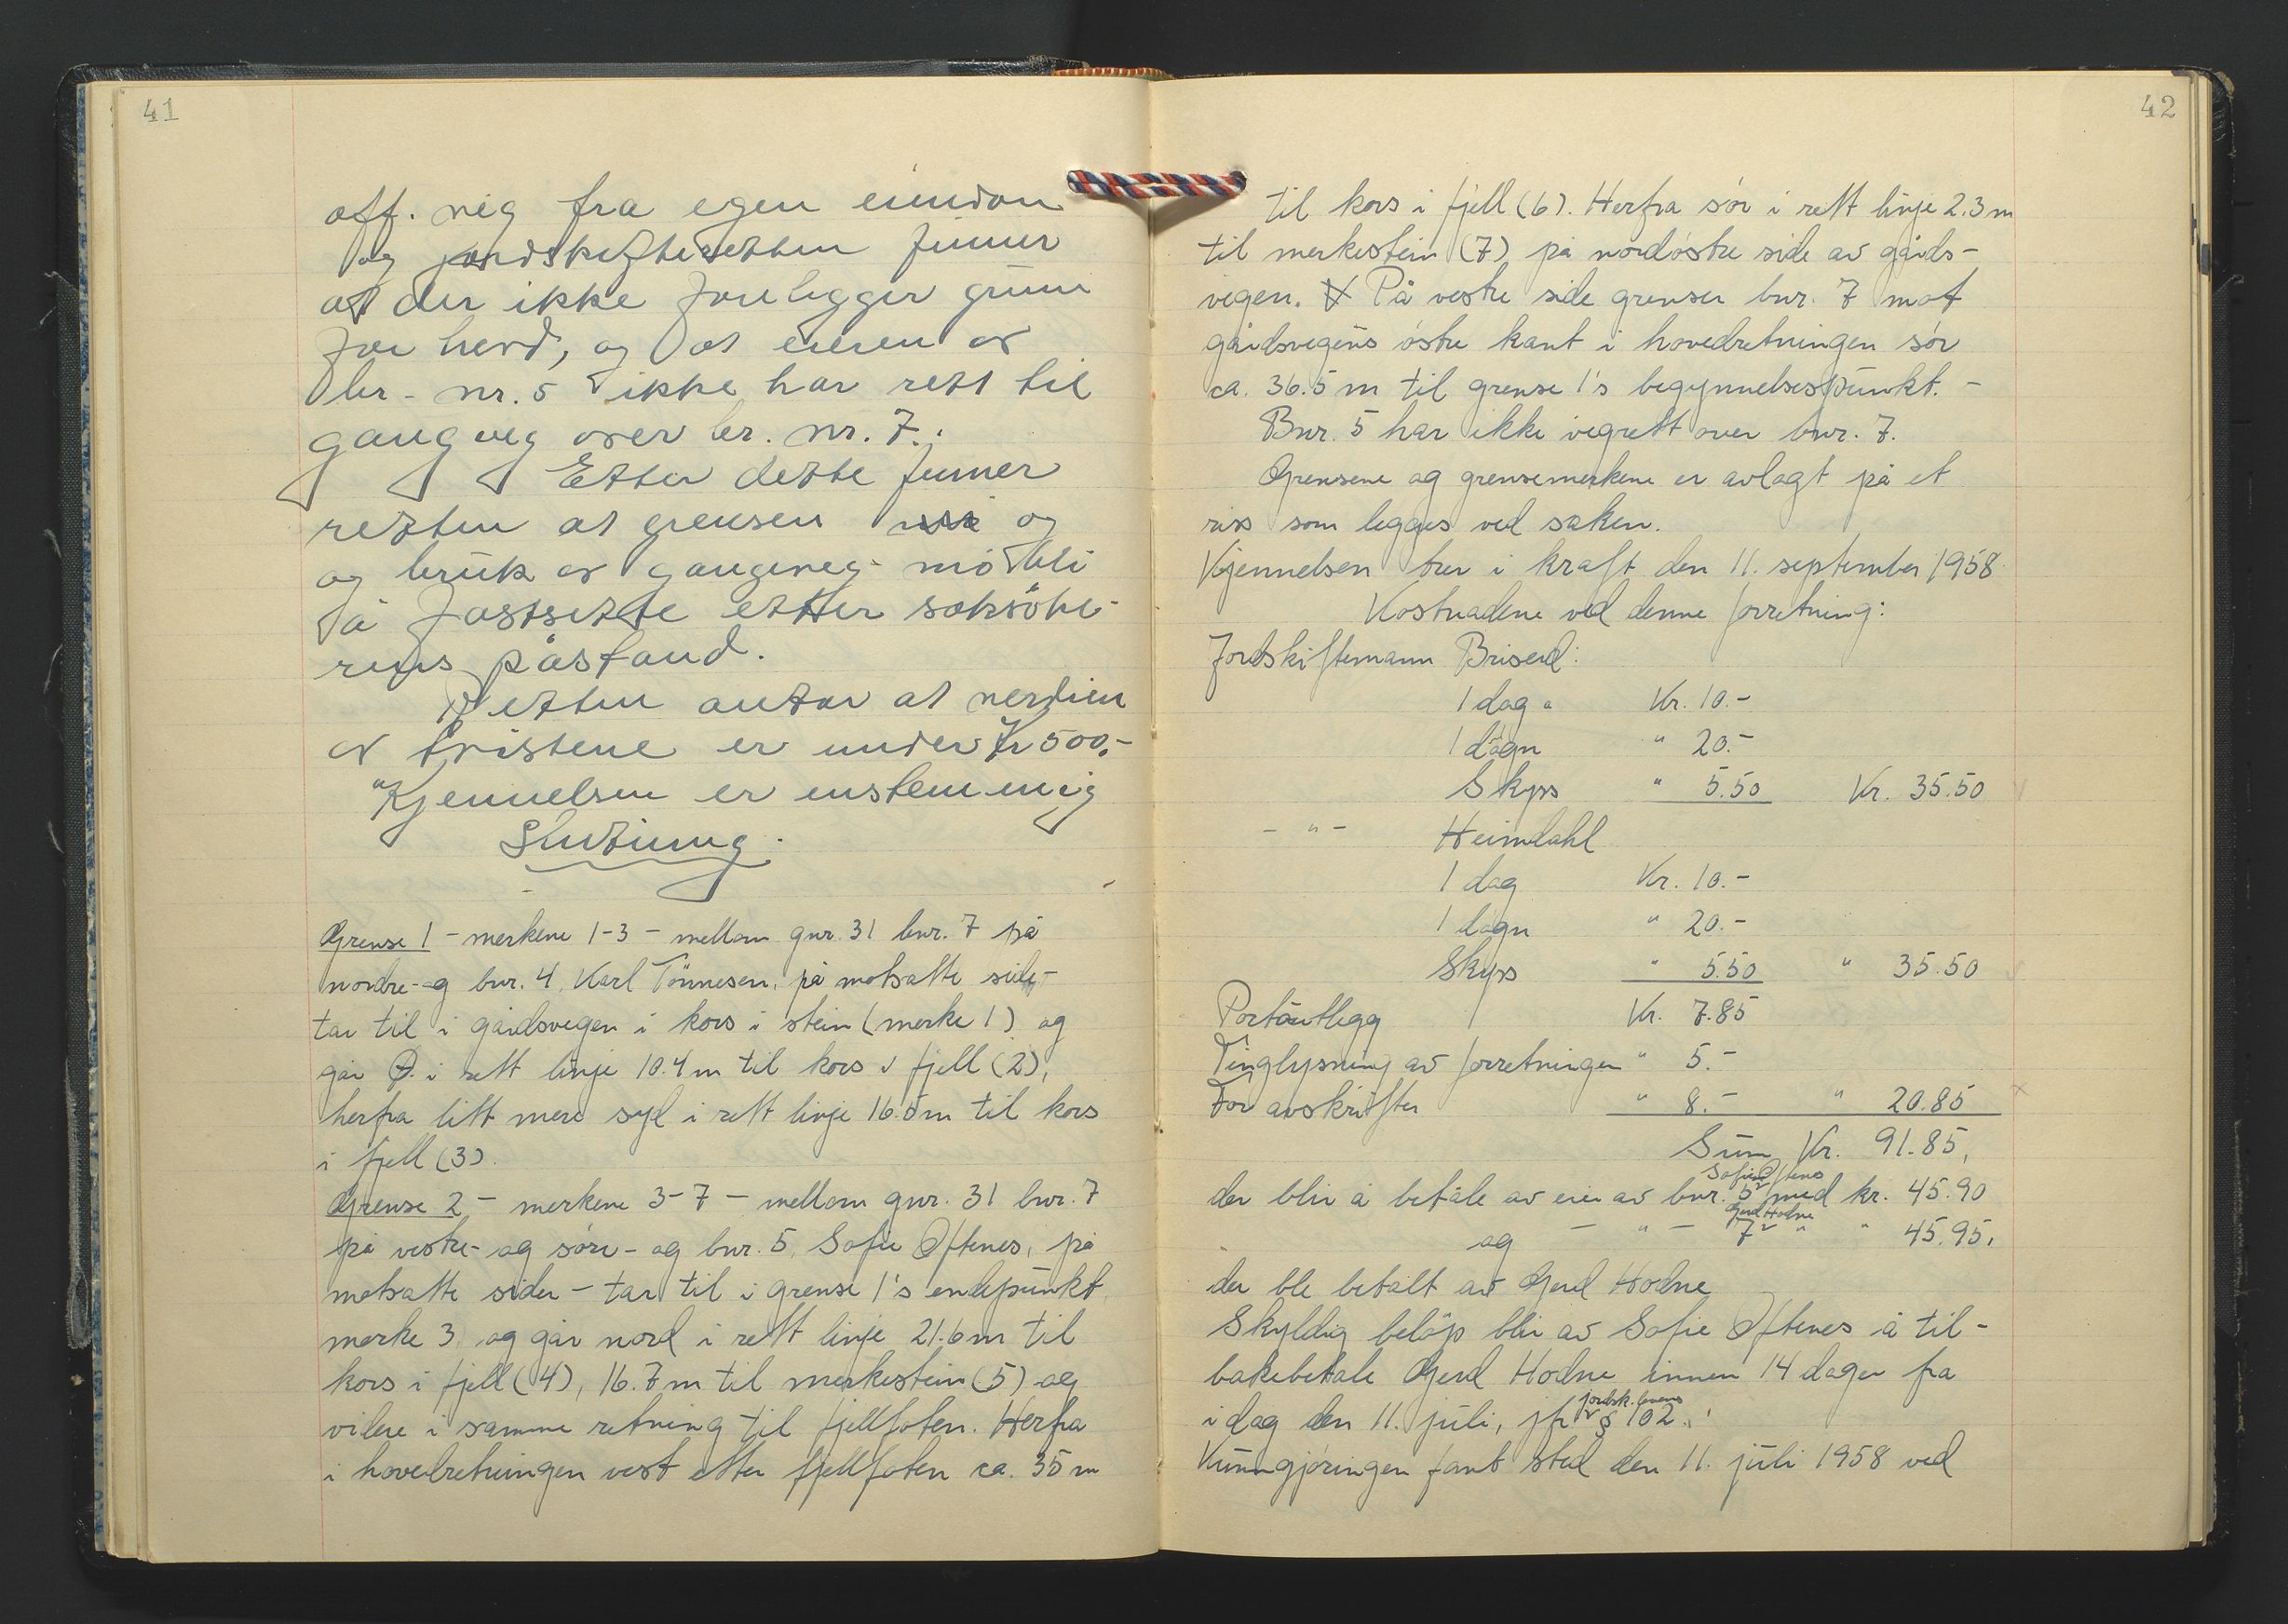 41
off. veg fra egen eiendom
og jordskifteretten finner
at der ikke foreligger grunn
for hevd, og at eieren av
br. nr. 5 ikke har rett til
gangveg over br. nr. 7.
Etter dette finner
retten at grensen og
og bruk av gangveg må bli
å fastsette etter saksøke-
rens påstand.
Retten antar at verdien
av tvistene er under kr 500,-
Kjennelsen er enstemmig
Slutning.
Grense 1 - merkene 1-3 - mellom gnr. 31 bnr. 7 på
nordre- og bnr. 4, Karl Tønnesen, på motsatte side-
tar til i gårdsvegen i kors i stein (merke 1) og
går Ø. i rett linje 10.4 m til kors i fjell (2),
herfra litt mere syd i rett linje 16.5 m til kors
i fjell (3).
Grense 2 - merkene 3-7 - mellom gnr. 31 bnr. 7
på vestre- og søre- og bnr. 5, Sofie Øftenes, på
motsatte sider - tar til i grense 1's endepunkt
merke 3 og går nord i rett linje 21.6 m til
kors i fjell (4), 16.7 m til merkestein (5) og
videre i samme retning til fjellfoten. Herfra
i hovedretningen vest etter fjellfoten ca. 35 m
42
til kors i fjell (6). Herfra sør i rett linje 2.3 m
til merkestein (7) på nordøstre side av gårds-
vegen. På vestre side grenser bnr. 7 mot
gårdsvegens østre kant i hovedretningen sør
ca. 36.5 m til grense 1's begynnelsespunkt. -
Bnr. 5 har ikke vegrett over bnr. 7.
Grensene og grensemerkene er avlagt på et
riss som legges ved saken.
Kjennelsen trer i kraft den 11. september 1958.
Kostnadene ved denne forretning:
Jordskiftemann Briseid:
1 dag a Kr. 10.-
1 døgn " 20.-
Skyss " 5.50 Kr. 35.50
- " - Heimdahl
1 dag Kr. 10.-
1 døgn " 20.-
Skyss " 5.50 " 35.50
Portoutlegg Kr. 7.85
Tinglysning av forretningen " 5.-
For avskrifter " 8.- " 20.85
Sum Kr. 91.85,
Sofie Øftenes
der blir å betale av eier av bnr. 5 med kr. 45.90
Gerd Hodne
og - " - 7 " " 45.95,
der ble betalt av Gerd Hodne
Skyldig beløp blir av Sofie Øftenes å til-
bakebetale Gerd Hodne innen 14 dager fra
jordsk.lovens
i dag den 11. juli, jfr § 102.
Kunngjøringen fant sted den 11. juli 1958 ved